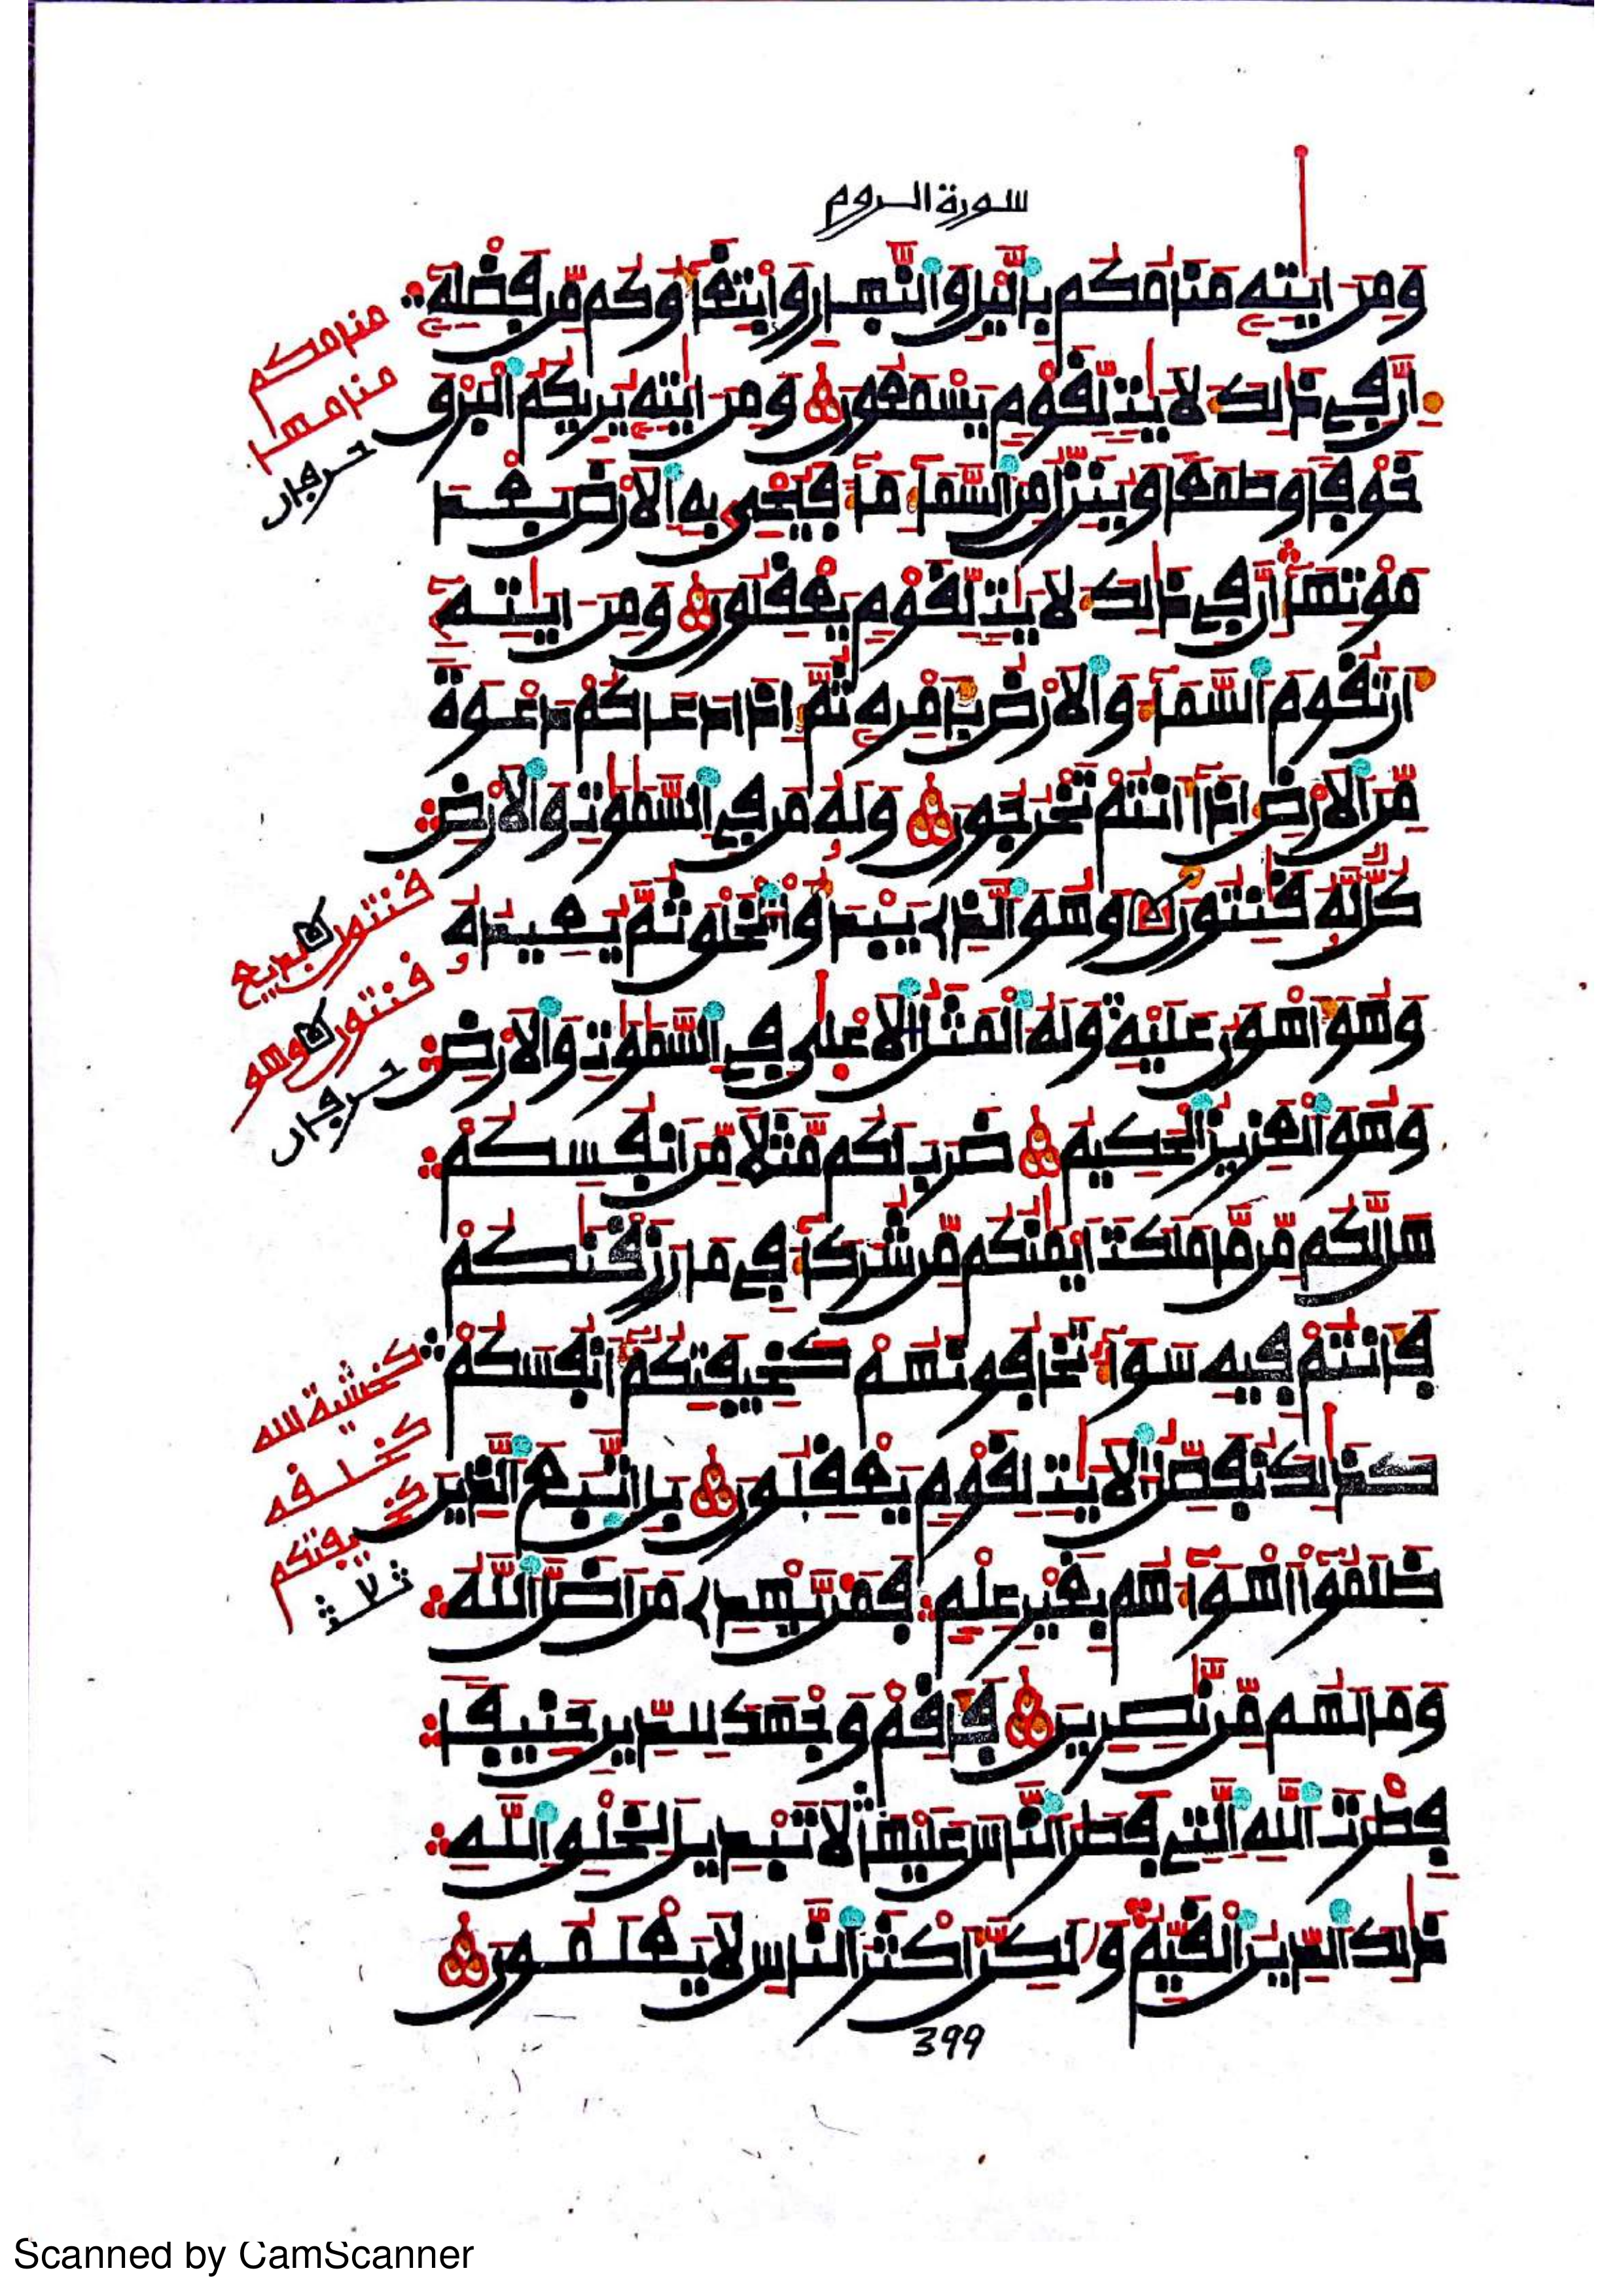 سورة الروم
وَمِنَ ايَٰتِهِۦ مَنَامُكُم بِاليْلِ وَالنَّهارِ وَابْتِغَاؤُكُم مِّن فَضْلِهِۦٓ
إِنَّ فِے ذَٰلِكَ لَأٓيَٰتٖ لِّقَوْمٖ يَسْمَعُونَ وَمِنَ ايَٰتِهِۦ يُرِيكُمُ الْبَرْقَ
خَوْفاٗ وَطَمَعاٗ وَيُنَزِّلُ مِنَ السَّمَآءِ مَآءٗ فَيُحْيِۦ بِهِ الْأَرْضَ بَعْدَ
مَوْتِهَآ إِنَّ فِے ذَٰلِكَ لَأٓيَٰتٖ لِّقَوْمٖ يَعْقِلُونَ وَمِنَ ايَٰتِهِۦٓ
أَن تَقُومَ السَّمَآءُ وَالْأَرْضُ بِأَمْرِهِۦ ثُمَّ إِذَا دَعَاكُمْ دَعْوَةٗ
مِّنَ الْأَرْضِ إِذَآ أَنتُمْ تَخْرُجُونَ وَلَهُۥ مَن فِے السَّمَٰوَٰتِ وَالْأَرْضِ
كُلّٞ لَّهُۥ قَٰنِتُونَ وَهُوَ الذِے يَبْدَؤُا الْخَلْقَ ثُمَّ يُعِيدُهُۥ
وَهُوَ أَهْوَنُ عَلَيْهِ وَلَهُ الْمَثَلُ الْأَعْلَىٰ فِے السَّمَٰوَٰتِ وَالْأَرْضِ
وَهُوَ الْعَزِيزُ الْحَكِيمُ ضَرَبَ لَكُم مَّثَلاٗ مِّنَ انفُسِكُمْ
هَل لَّكُم مِّن مَّا مَلَكَتَ ايْمَٰنُكُم مِّن شُرَكَآءَ فِے مَا رَزَقْنَٰكُمْ
فَأَنتُمْ فِيهِ سَوَآءٞ تَخَافُونَهُمْ كَخِيفَتِكُمُۥٓ أَنفُسَكُمْ
كَذَٰلِكَ نُفَصِّلُ الْأٓيَٰتِ لِقَوْمٖ يَعْقِلُونَ بَلِ اتَّبَعَ الذِينَ
ظَلَمُوٓا أَهْوَآءَهُم بِغَيْرِ عِلْمٖ فَمَنْ يَّهْدِے مَنَ اضَلَّ اللَّهُ
وَمَا لَهُم مِّن نَّٰصِرِينَ فَأَقِمْ وَجْهَكَ لِلدِّينِ حَنِيفاٗ
فِطْرَتَ اللَّهِ التِے فَطَرَ النَّاسَ عَلَيْهَا لَا تَبْدِيلَ لِخَلْقِ اللَّهِ
ذَٰلِكَ الدِّينُ الْقَيِّمُ وَلَٰكِنَّ أَكْثَرَ النَّاسِ لَا يَعْلَمُونَ
399
منامكم
منامها
حرفان
قنتون بديع
قنتون وهو
حرفان
كخشية الله
كخيفتكم
ثلاثة
Scanned by CamScanner